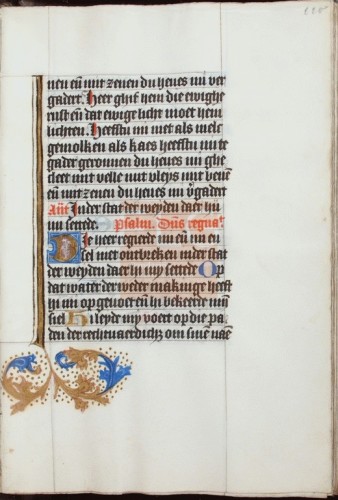 nen en̄ mit zenen du heues mi ver
gadert. Heer ghif hem die ewighe
rust en̄ dat ewige licht moet hem
lichten. Heefstu mi niet als melc
gemolken als kaes heefstu mi te
gader geronnen du heues mi ghe
cleet mit velle mit vleys mit benen
en̄ mit zenen du heues mi v̄gadert
Ant̄ In der stat der weyden daer hi
mi settede. Psalm. Dn̄s regna
Die heer regeert mi en̄ mi en
sel niet ontbreken in der stat
der weyden daer hi my settede Op
dat water der weder makinge heeft
hi mi op geuoet en̄ hi bekeerde min
siel Hi leyde my voert op die pa
den der rechtuaerdich̄z om sine naē